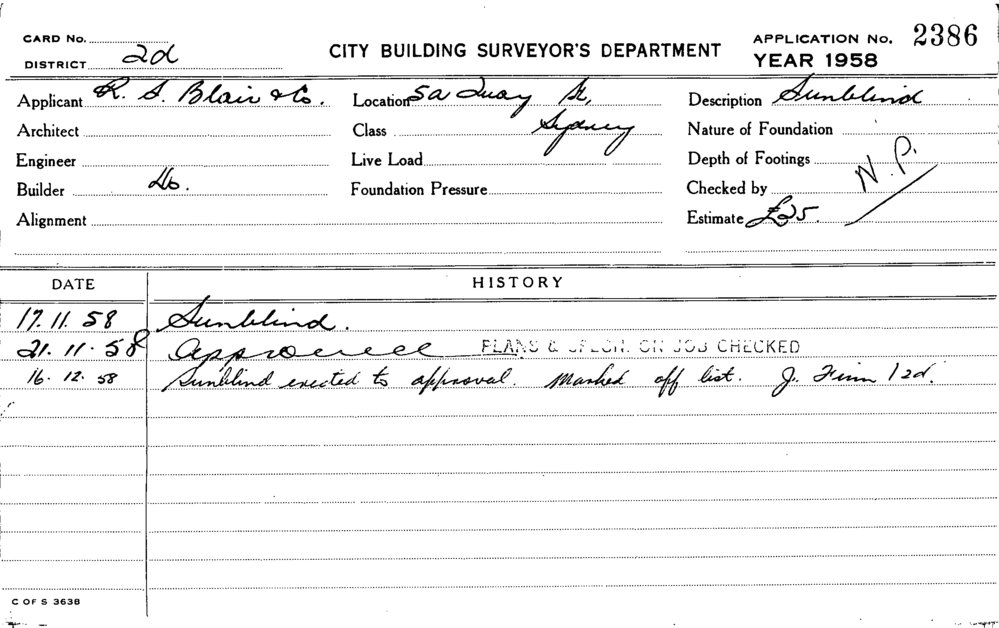 CARD No.
DISTRICT 2d
CITY BUILDING SURVEYOR'S DEPARTMENT
APPLICATION No. 2386
YEAR 1958
Applicant R. S. Blair & Co.
Location 5a Quay St,
Description Sunblind
Architect
Class Sydney
Nature of Foundation
Engineer
Live Load
Depth of Footings
N.P.
Builder Do.
Foundation Pressure
Checked by
Alignment
Estimate £25.
DATE HISTORY
17.11.58 Sunblind.
21.11.58 Approved PLANS & SPECN. ON JOB CHECKED
16.12.58 Sunblind erected to approval. Marked off list. J. Finn 12d.
C OF S 3638